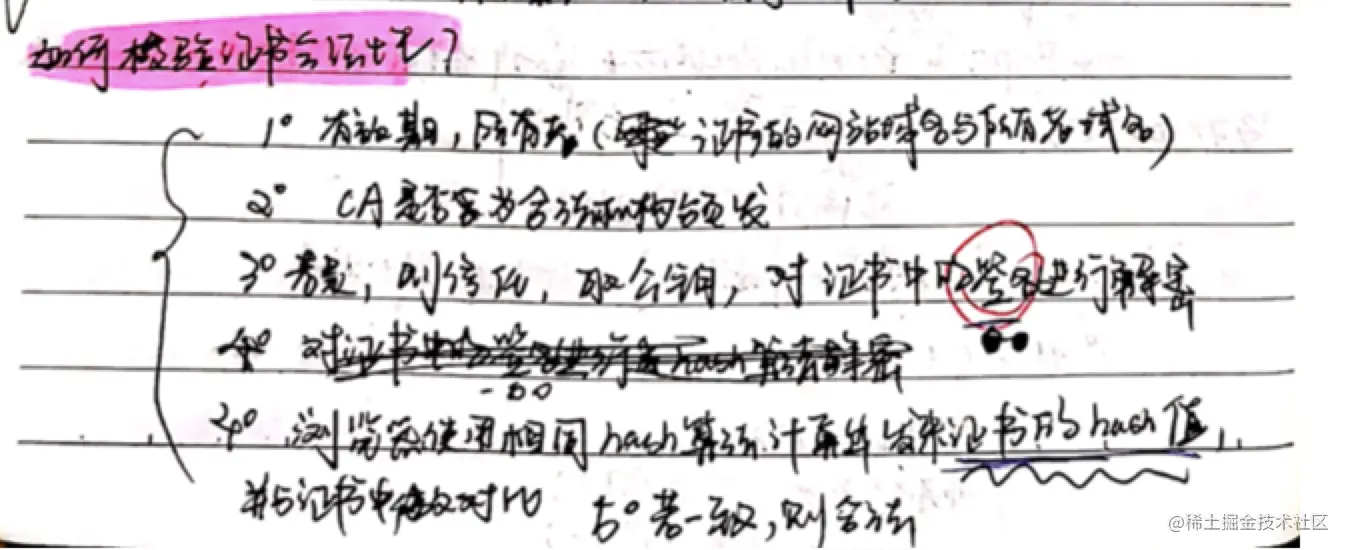 如何校验证书合法性?
1° 有效期,所有者(证书的网站域名与所有者域名)
2° CA是否为合法机构颁发
3° 若是,则信任,取公钥,对证书中的签名进行解密
4° 对证书中的签名进行hash算法解密
4° 浏览器使用相同hash算法计算出发来证书的hash值,
并与证书中做对比 5° 若一致,则合法
@稀土掘金技术社区